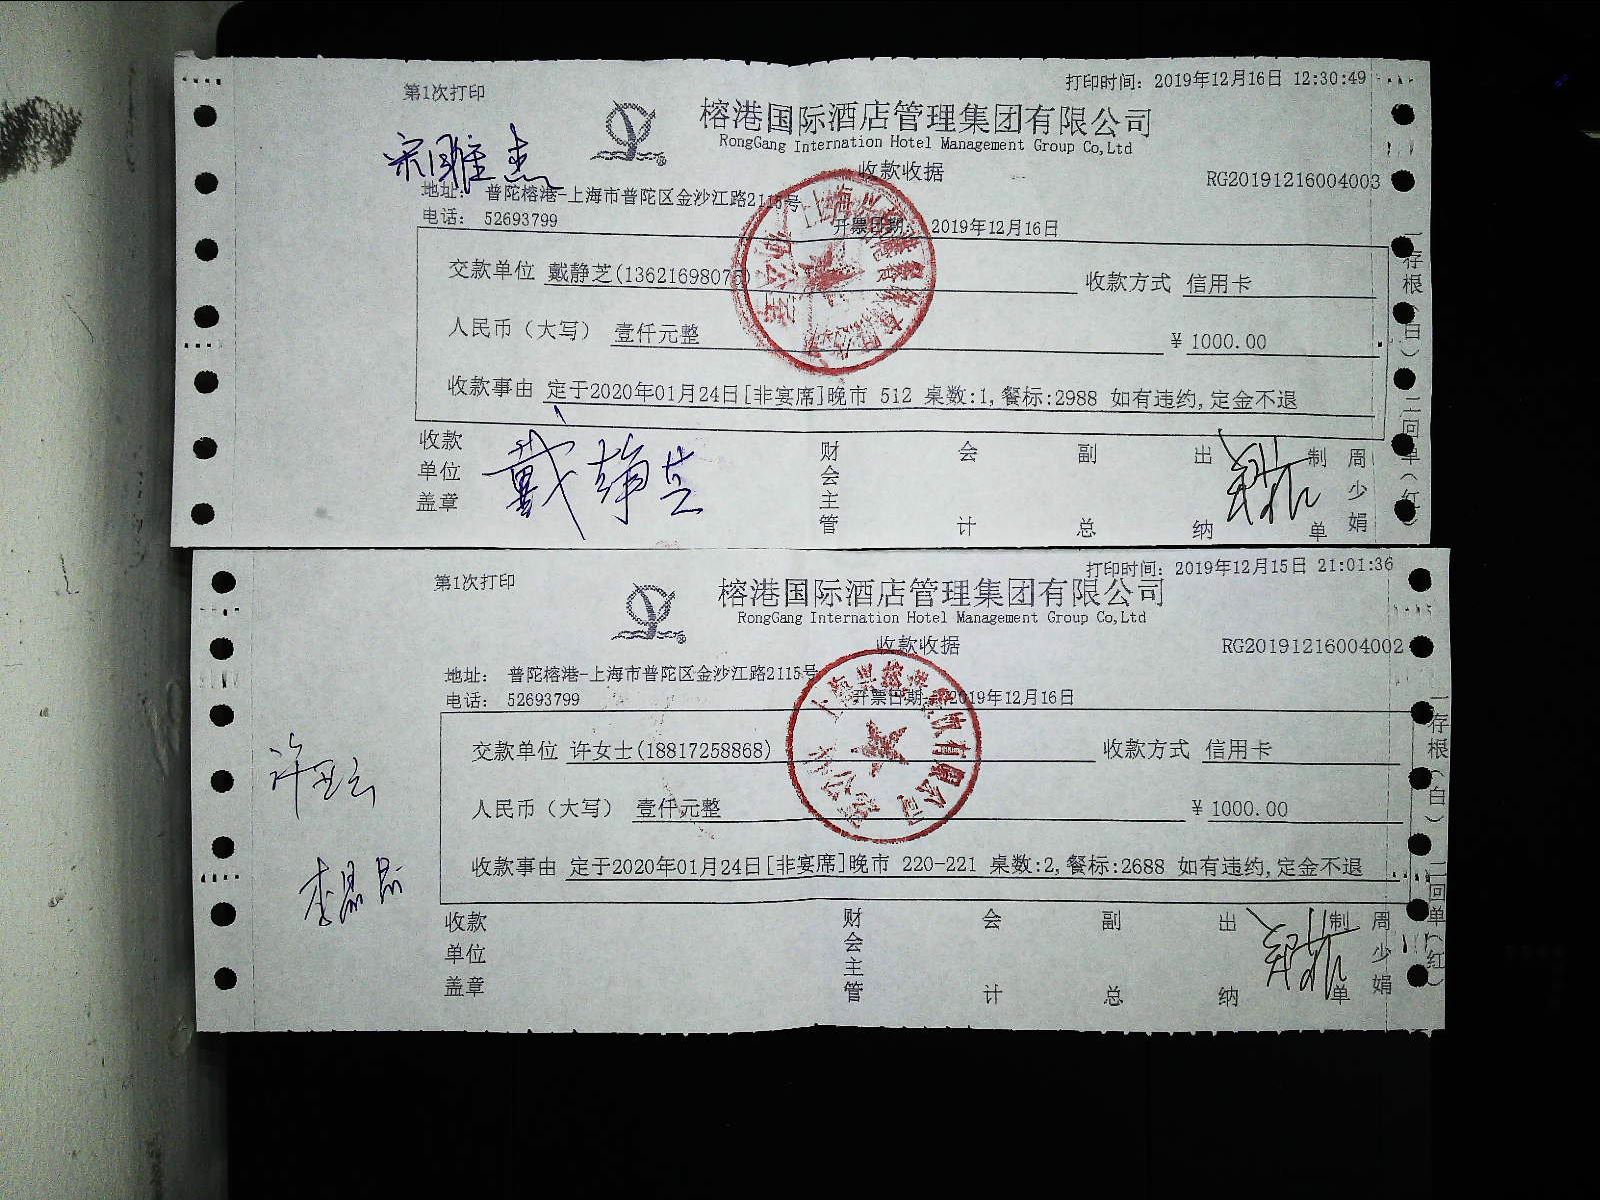 第1次打印
打印时间: 2019年12月16日 12:30:49
榕港国际酒店管理集团有限公司
RongGang Internation Hotel Management Group Co,Ltd
收款收据
RG20191216004003
地址: 普陀榕港-上海市普陀区金沙江路2115号
电话: 52693799
开票日期: 2019年12月16日
交款单位 戴静芝(13621698075)
收款方式 信用卡
人民币（大写） 壹仟元整
¥ 1000.00
收款事由 定于2020年01月24日[非宴席]晚市 512 桌数:1,餐标:2988 如有违约,定金不退
收款单位盖章
戴静芝
财会主管
会计
副总
出纳
制单
周少娟
一存根(白) 二回单(红)
第1次打印
打印时间: 2019年12月15日 21:01:36
榕港国际酒店管理集团有限公司
RongGang Internation Hotel Management Group Co,Ltd
收款收据
RG20191216004002
地址: 普陀榕港-上海市普陀区金沙江路2115号
电话: 52693799
开票日期: 2019年12月16日
交款单位 许女士(18817258868)
收款方式 信用卡
人民币（大写） 壹仟元整
¥ 1000.00
收款事由 定于2020年01月24日[非宴席]晚市 220-221 桌数:2,餐标:2688 如有违约,定金不退
收款单位盖章
财会主管
会计
副总
出纳
制单
周少娟
一存根(白) 二回单(红)